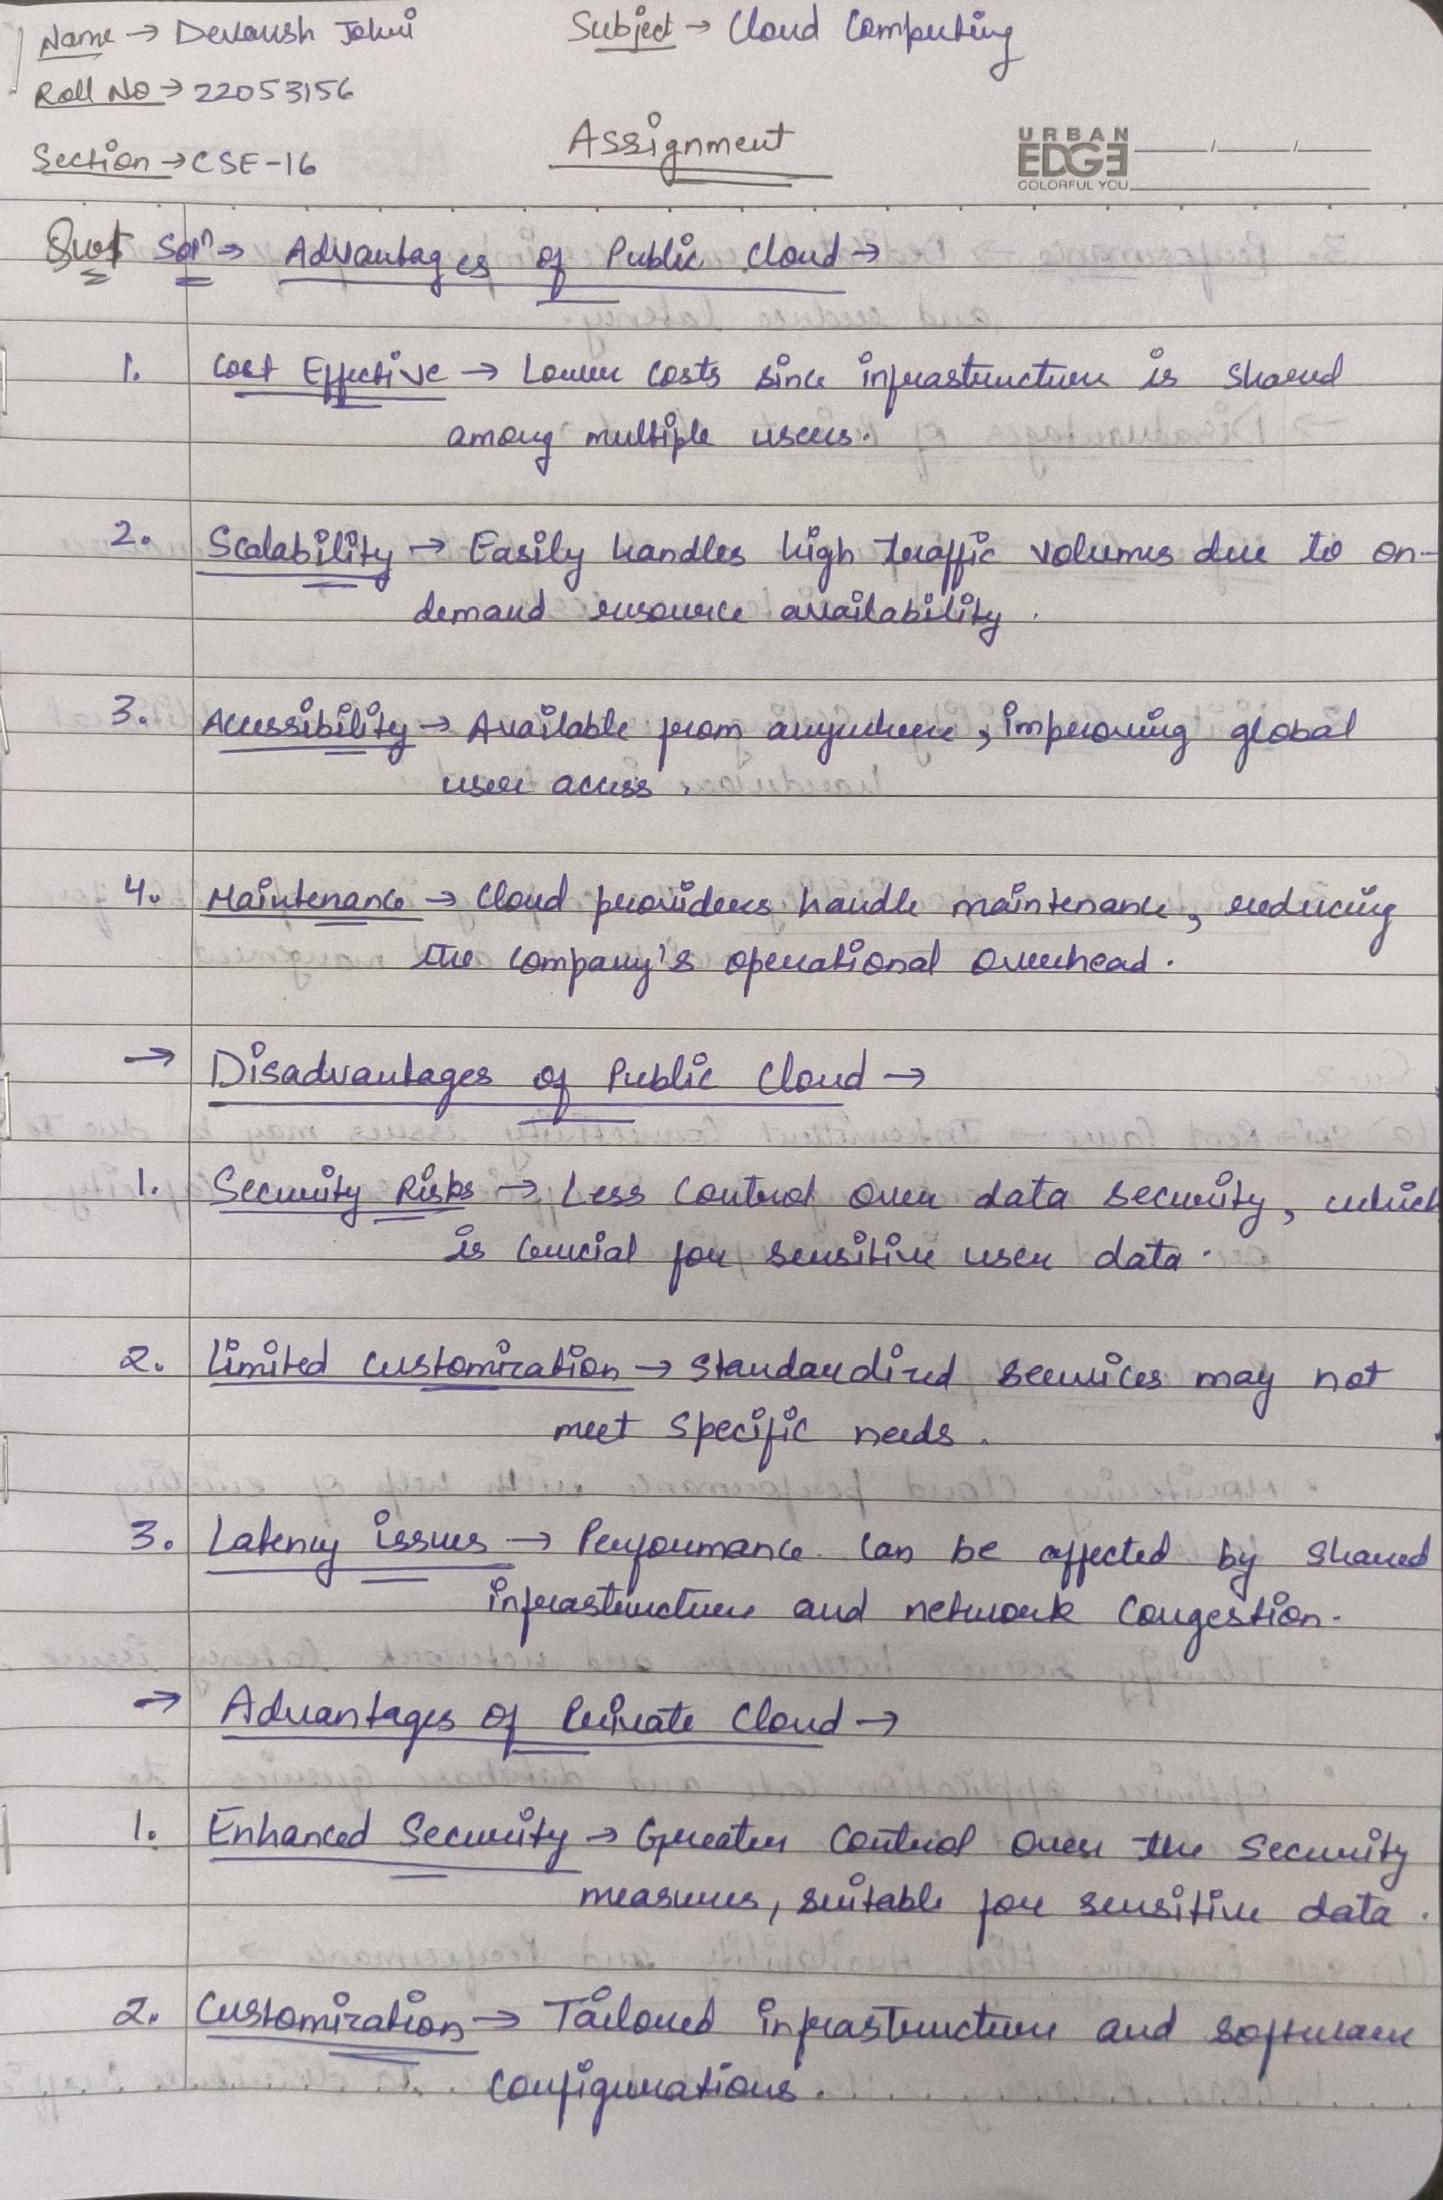 Name → Devansh Johri Subject → Cloud Computing
Roll No → 22053156
Section → CSE-16 Assignment
URBAN
EDGE
COLORFUL YOU
Que1 Solⁿ → Advantages of Public Cloud →
1. Cost Effective → Lower costs since infrastructure is shared
among multiple users.
2. Scalability → Easily handles high traffic volumes due to on-
demand resource availability.
3. Accessibility → Available from anywhere, improving global
user access.
4. Maintenance → Cloud providers handle maintenance, reducing
the company's operational overhead.
→ Disadvantages of Public Cloud →
1. Security Risks → Less control over data security, which
is crucial for sensitive user data.
2. Limited customization → Standardized services may not
meet specific needs.
3. Latency issues → Performance can be affected by shared
infrastructure and network congestion.
→ Advantages of Private Cloud →
1. Enhanced Security → Greater control over the security
measures, suitable for sensitive data.
2. Customization → Tailored infrastructure and software
configurations.